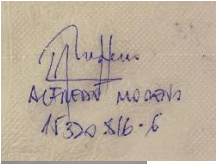 ALFREDO MORENO
15320816-6